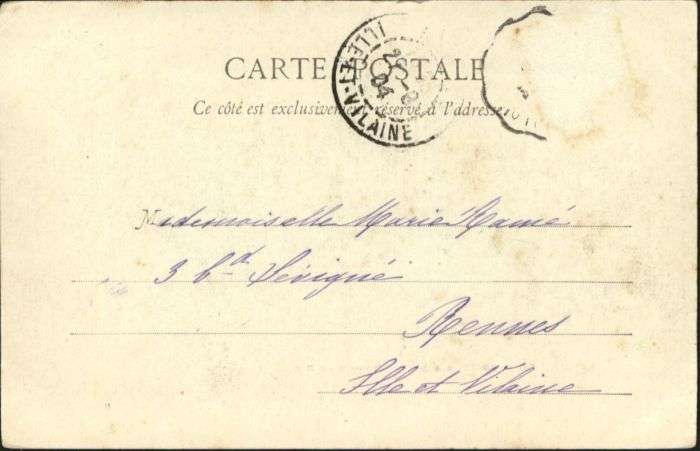 CARTE POSTALE
Ce côté est exclusivement réservé à l'adresse
ILLE-ET-VILAINE
04
Mademoiselle Marie Ramé
3 bd Sévigné
Rennes
Ille et Vilaine